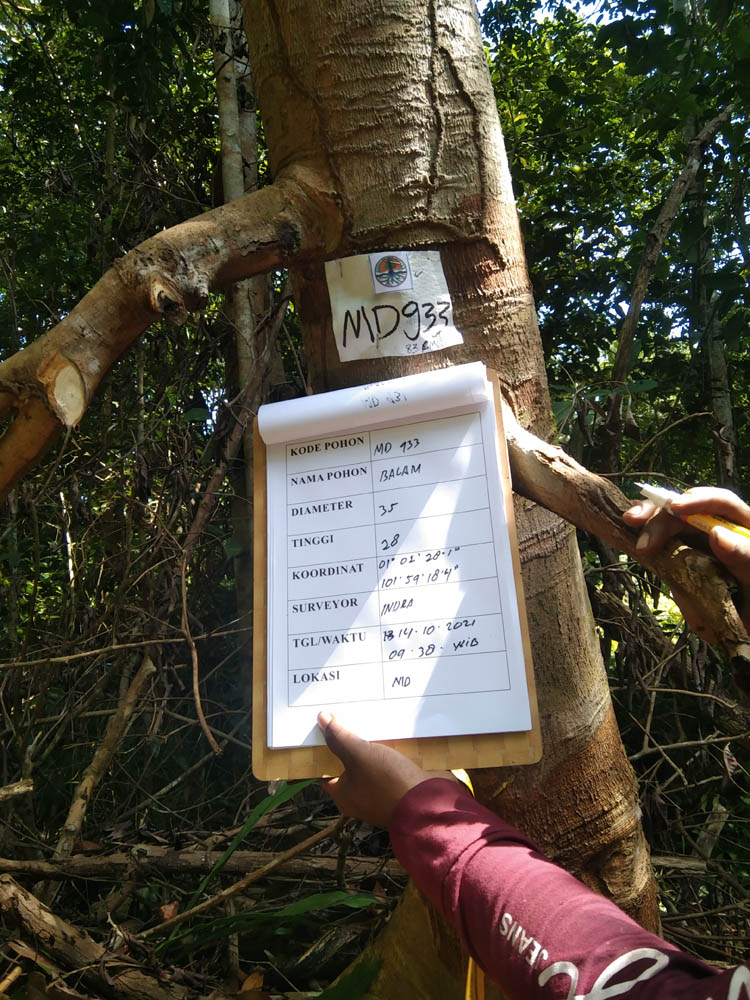 MD933
MD 931
KODE POHON MD 933
NAMA POHON BALAM
DIAMETER 35
TINGGI 28
KOORDINAT 01° 01' 28.1"
101° 59' 18.4"
SURVEYOR INDRA
TGL/WAKTU 14.10.2021
09.38. WIB
LOKASI MD
JEANS